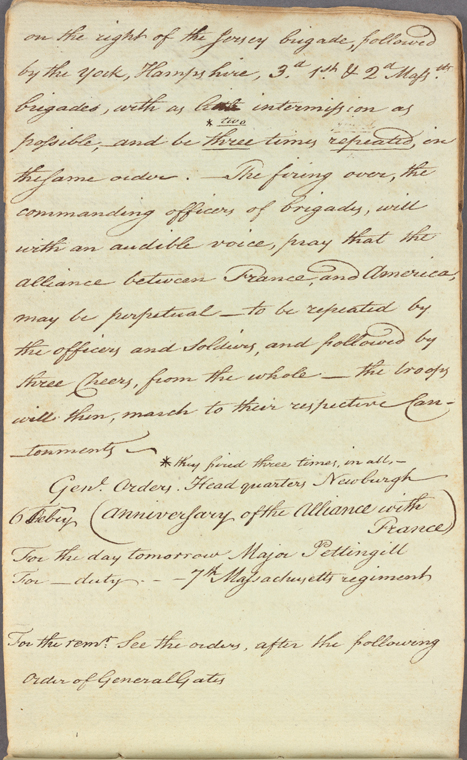 on the right of the Jersey brigade, followed
by the York, Hampshire, 3.d 1st & 2d Mass.tts
brigades, with as little intermission as
* two
possible – and be three times repeated, in
the same order. — The firing over, the
commanding officers of brigades, will
with an audible voice, pray that the
alliance between France, and America,
may be perpetual – to be repeated by
the officers and Soldiers, and followed by
three Cheers, from the whole — the troops
will then, march to their respective Can-
-tonments ~
* they fired three times, in all, –
Genl. Orders. Head quarters Newburgh
6 Febry (Anniversary of the Alliance with
France)
For the day tomorrow Major Pettingill
For — duty - - - 7th Massachusetts regiment
For the remr. See the orders, after the following
Order of General Gates